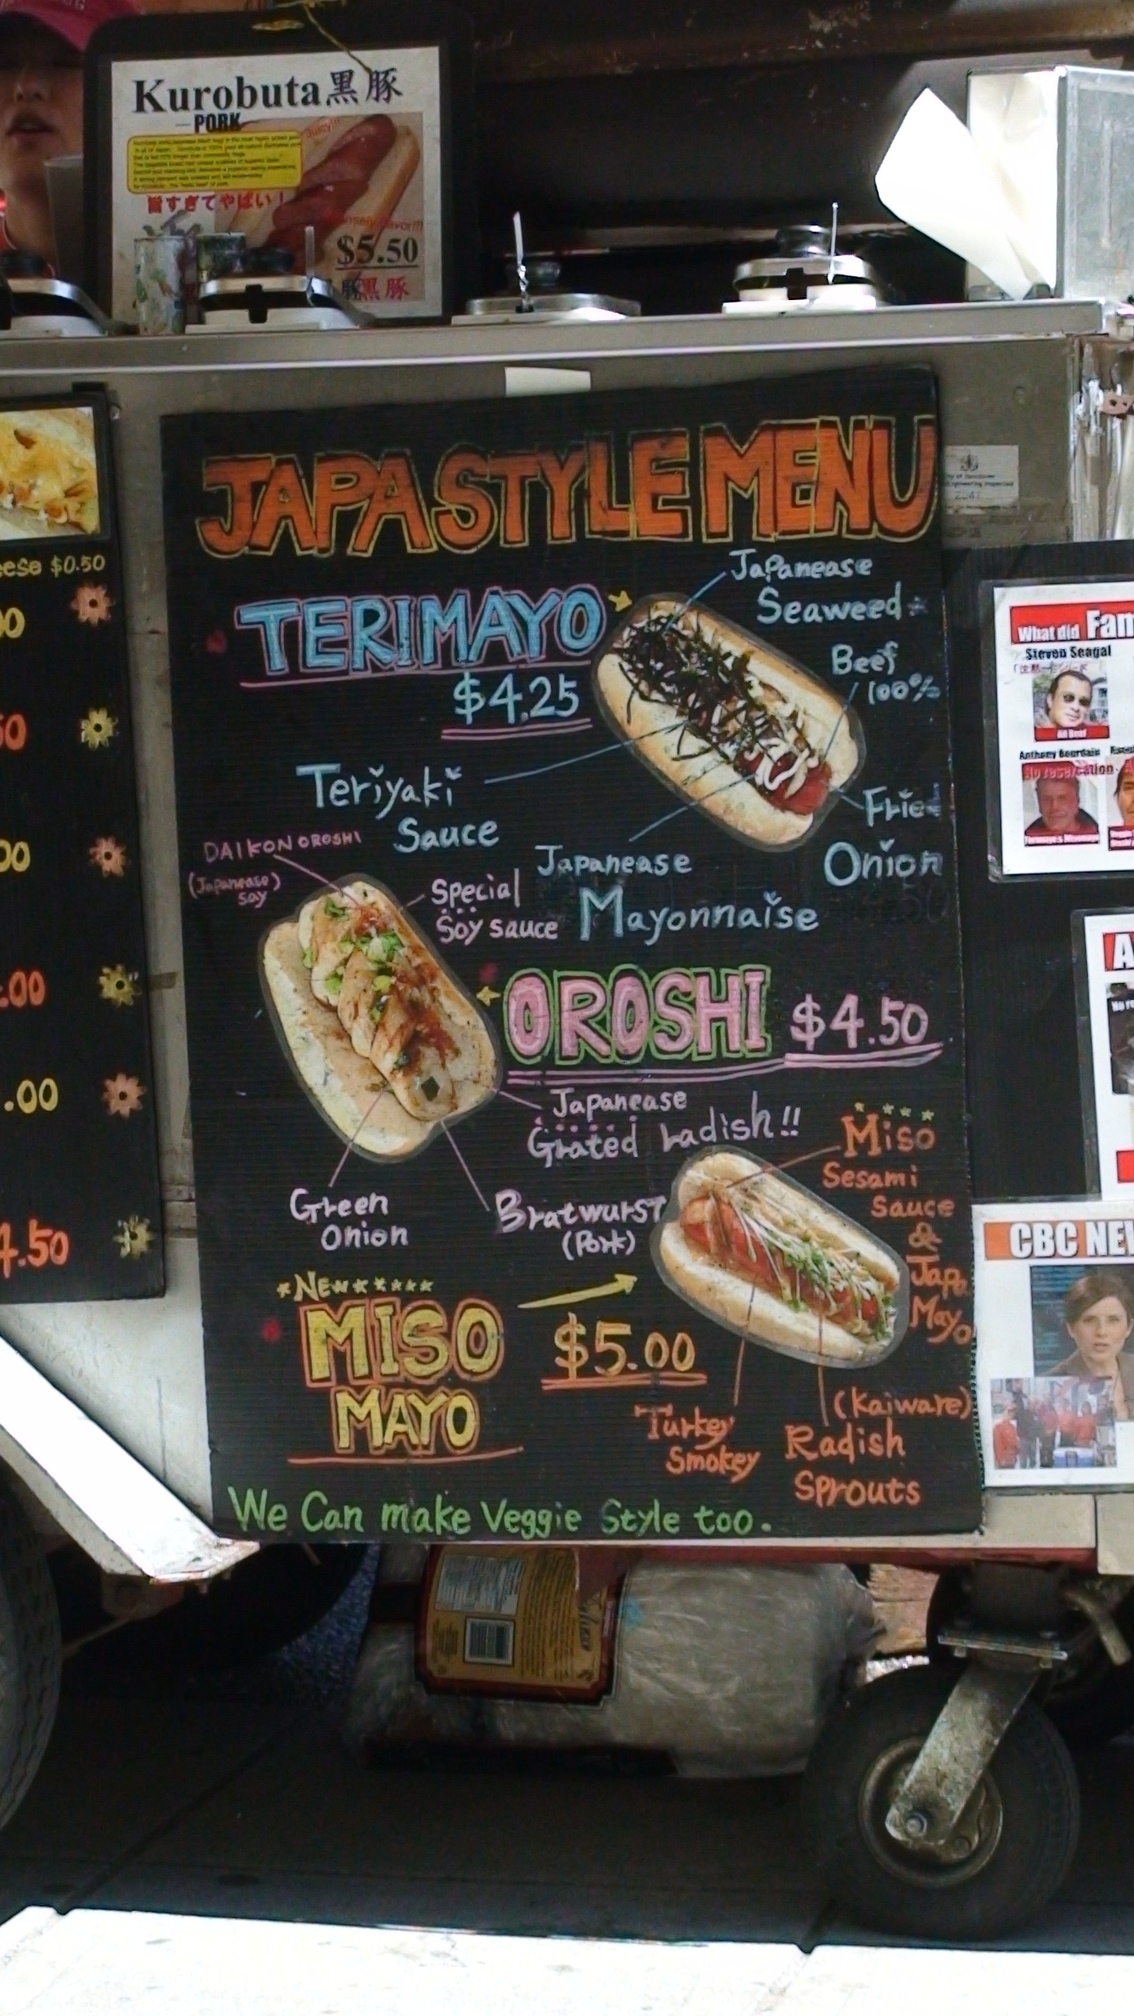 Kurobuta黒豚
PORK
旨すぎてやばい!
$5.50
黒豚
JAPA STYLE MENU
TERIMAYO
$4.25
Japanease
Seaweed
Beef
100%
Teriyaki
Sauce
Fried
Onion
Japanease
Mayonnaise
DAIKON OROSHI
(Japanease)
Say
Special
Soy sauce
OROSHI $4.50
Japanease
Grated radish!!
Green
Onion
Bratwurst
(Pork)
Miso
Sesami
Sauce
&
Japa
Mayo
New
MISO
MAYO
$5.00
Turkey
Smokey
(Kaiware)
Radish
Sprouts
We Can make Veggie Style too.
$0.50
00
50
00
.00
.00
4.50
What did Fam
Steven Seagal
All Beef
Anthony Bourdain
No reservation
CBC NEW